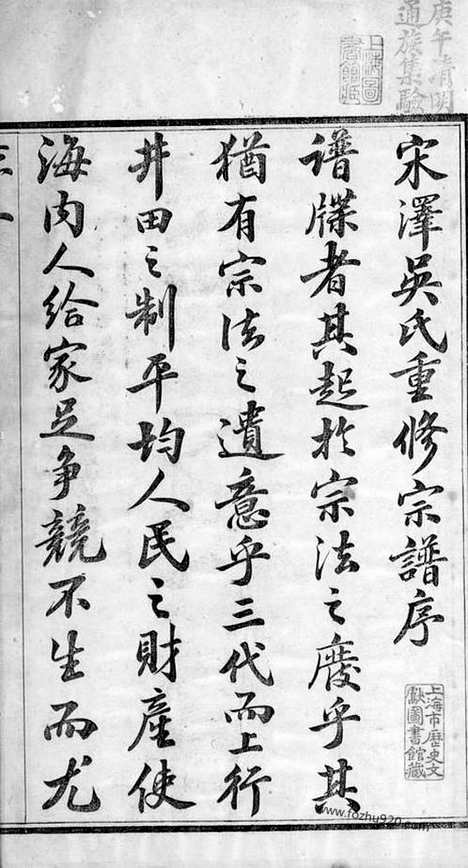 庚午清明
通族集驗
上海圖
書館藏
宋澤吳氏重修宗譜序
譜牒者其起於宗法之廢乎其
猶有宗法之遺意乎三代而上行
井田之制平均人民之財產使
海內人給家足爭競不生而尤
上海市歷史文
獻圖書館藏
www.fozhu920.com